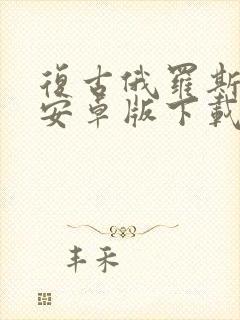 復古俄羅斯
安卓版下載
丰禾